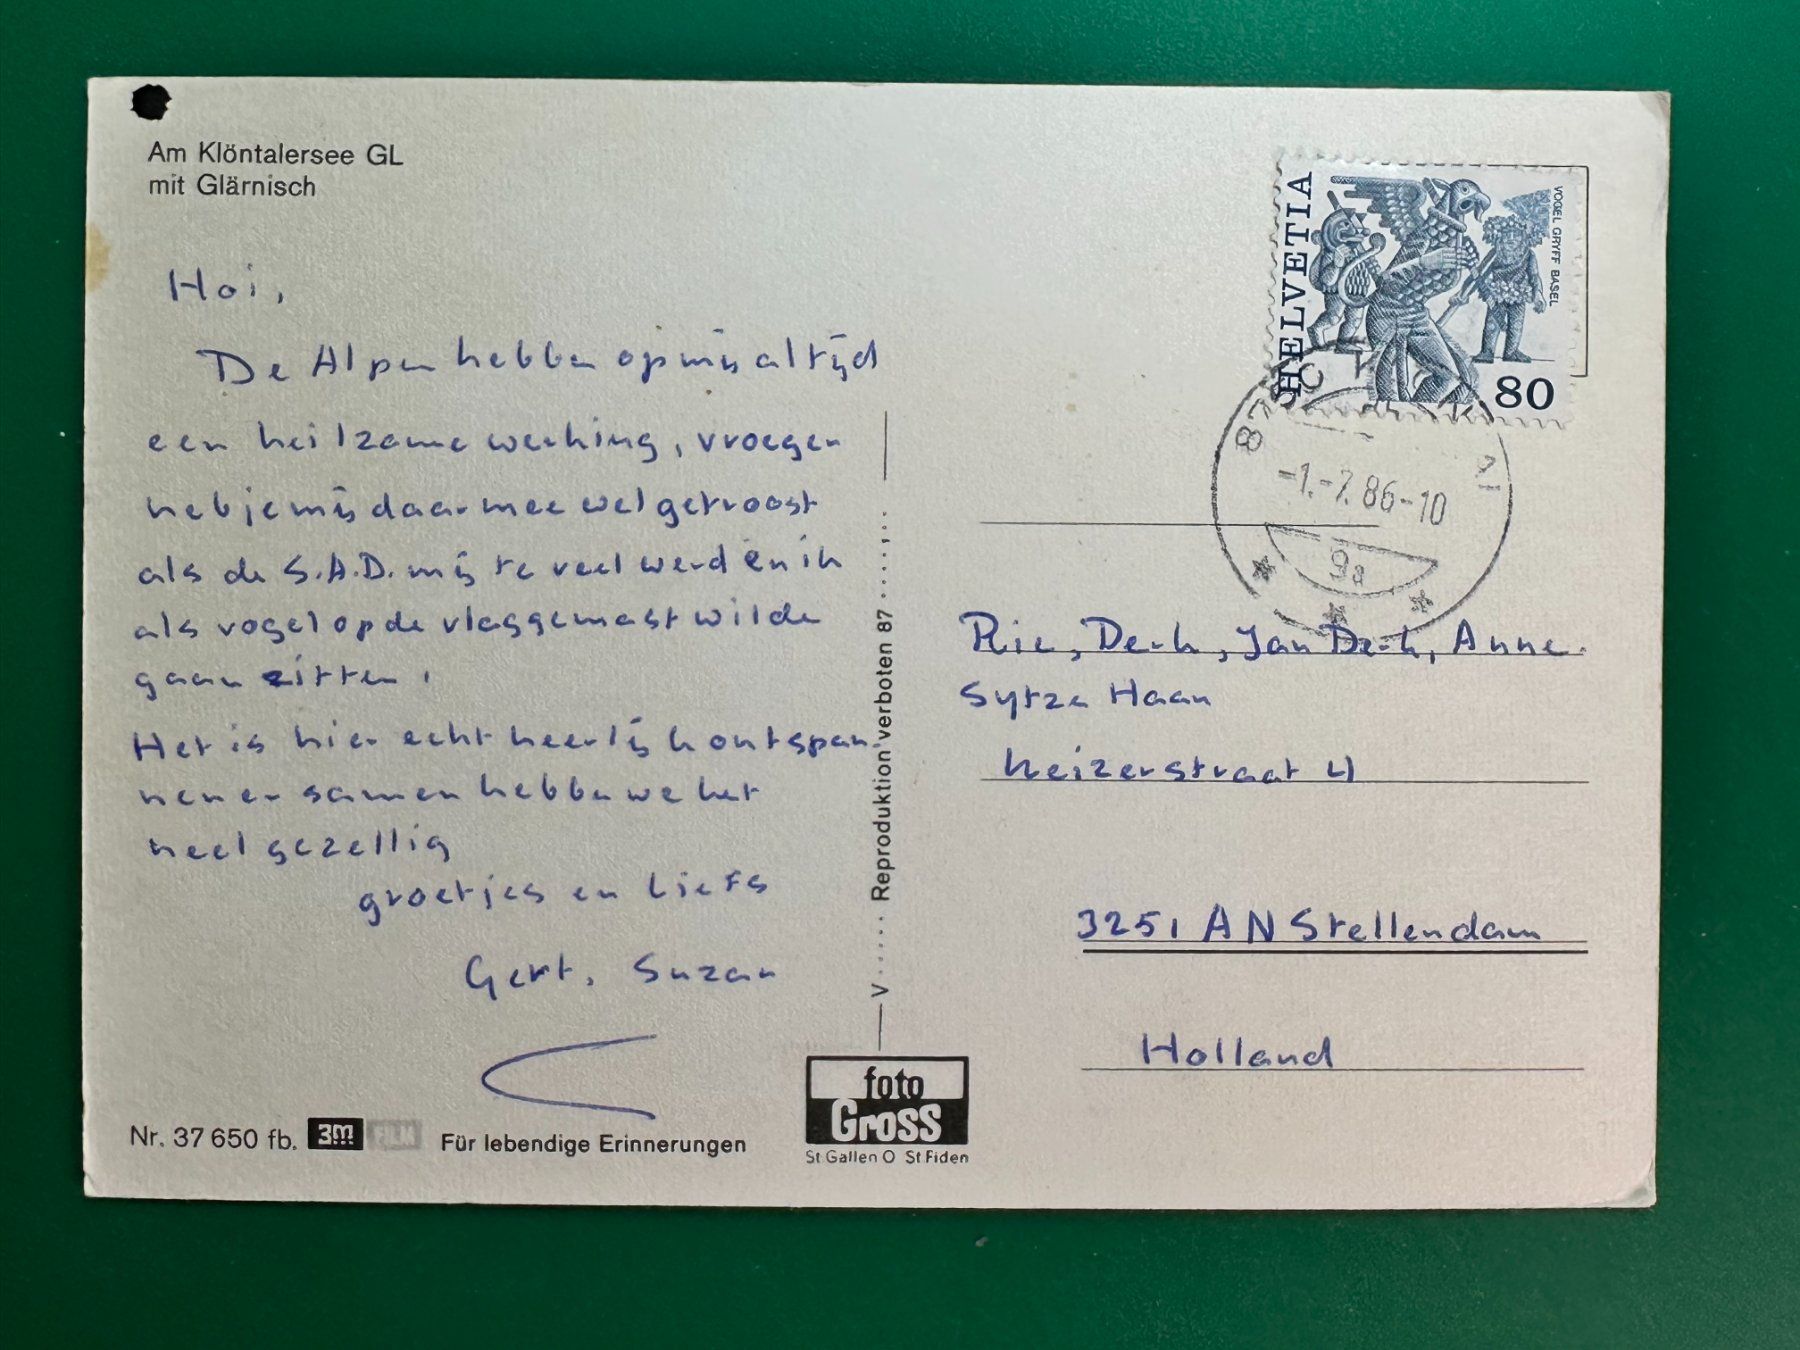 Am Klöntalersee GL
mit Glärnisch
Hoi,
De Alpen hebben op mij altijd
een heilzame werking, vroeger
heb je mij daarmee wel getroost
als de S.A.D. mij te veel werd en ik
als vogel op de vlaggemast wilde
gaan zitten.
Het is hier echt heerlijk ontspan-
nen en samen hebben we het
heel gezellig
groetjes en liefs
Gert, Suzan
Nr. 37 650 fb. 3M FILM Für lebendige Erinnerungen
V ..... Reproduktion verboten 87
foto
Gross
St.Gallen O St.Fiden
HELVETIA
VOGEL GRYFF BASEL
80
-1.-7.86-10
9a
Rie, Derk, Jan Derk, Anne.
Sytze Haan
Keizerstraat 4
3251 AN Stellendam
Holland